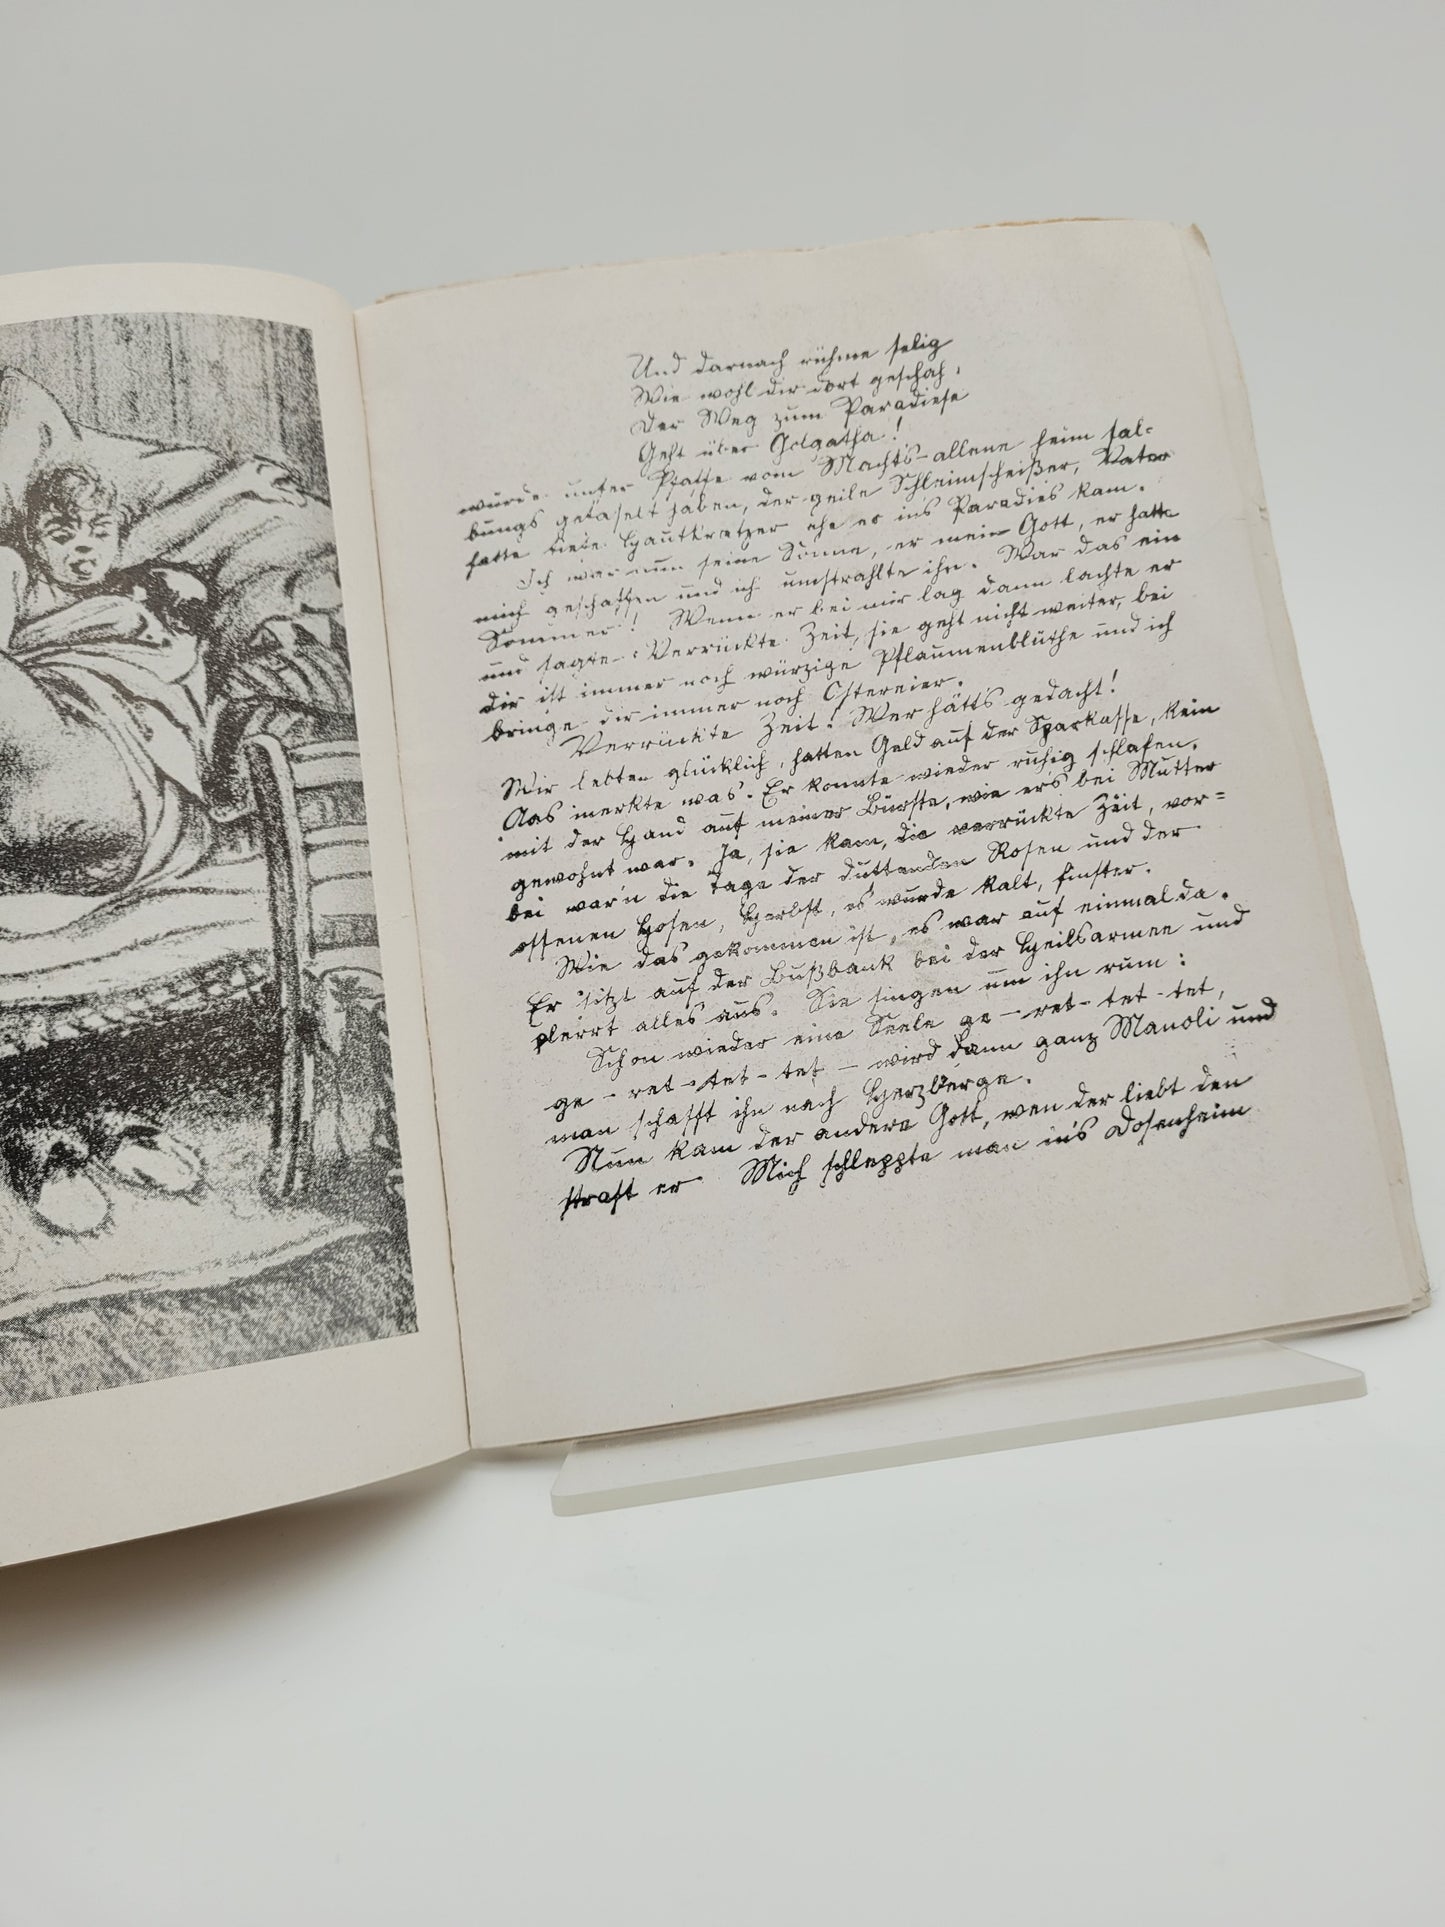 Und darnach rühme selig
Wie wohl dir dort geschah,
Der Weg zum Paradiese
Geht über Golgatha!
würde unser Pfaffe vom Machts-allene heim sal-
bungs getaselt haben, der geile Schleimscheißer, Vater
hatte viele Hautkratzer ehe er in's Paradies kam.
Ich war nun seine Sonne, er mein Gott, er hatte
mich geschaffen und ich umstrahlte ihn. War das ein
Sommer! Wenn er bei mir lag dann lachte er
und sagte: Verrückte Zeit, sie geht nicht weiter, bei
dir ist immer noch würzige Pflaumenblüthe und ich
bringe dir immer noch Ostereier.
Verrückte Zeit! Wer hätts gedacht!
Wir lebten glücklich, hatten Geld auf der Sparkasse, kein
Aas merkte was. Er konnte wieder ruhig schlafen,
mit der Hand auf meiner Bürste, wie er's bei Mutter
gewohnt war. Ja, sie kam, die verrückte Zeit, vor=
bei war'n die Tage der duttenden Rosen und der
offenen Hosen, Herbst, es wurde kalt, finster.
Wie das gekommen ist, es war auf einmal da.
Er sitzt auf der Bußbank bei der Heilsarmee und
plerrt alles aus. Sie singen um ihn rum:
Schon wieder eine Seele ge-ret-tet-tet,
ge-ret-tet-tet - wird dann ganz Manoli und
man schafft ihn nach Herzberge.
Nun kam der andere Gott, wen der liebt den
straft er. Mich schleppte man in's Dosenheim